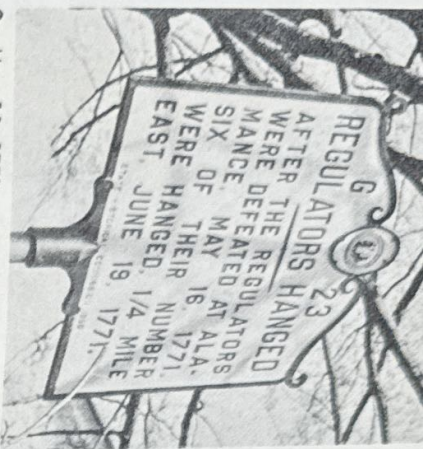 G 23
REGULATORS HANGED
AFTER THE REGULATORS
WERE DEFEATED AT ALA-
MANCE, MAY 16, 1771,
SIX OF THEIR NUMBER
WERE HANGED, 1/4 MILE
EAST JUNE 19, 1771.